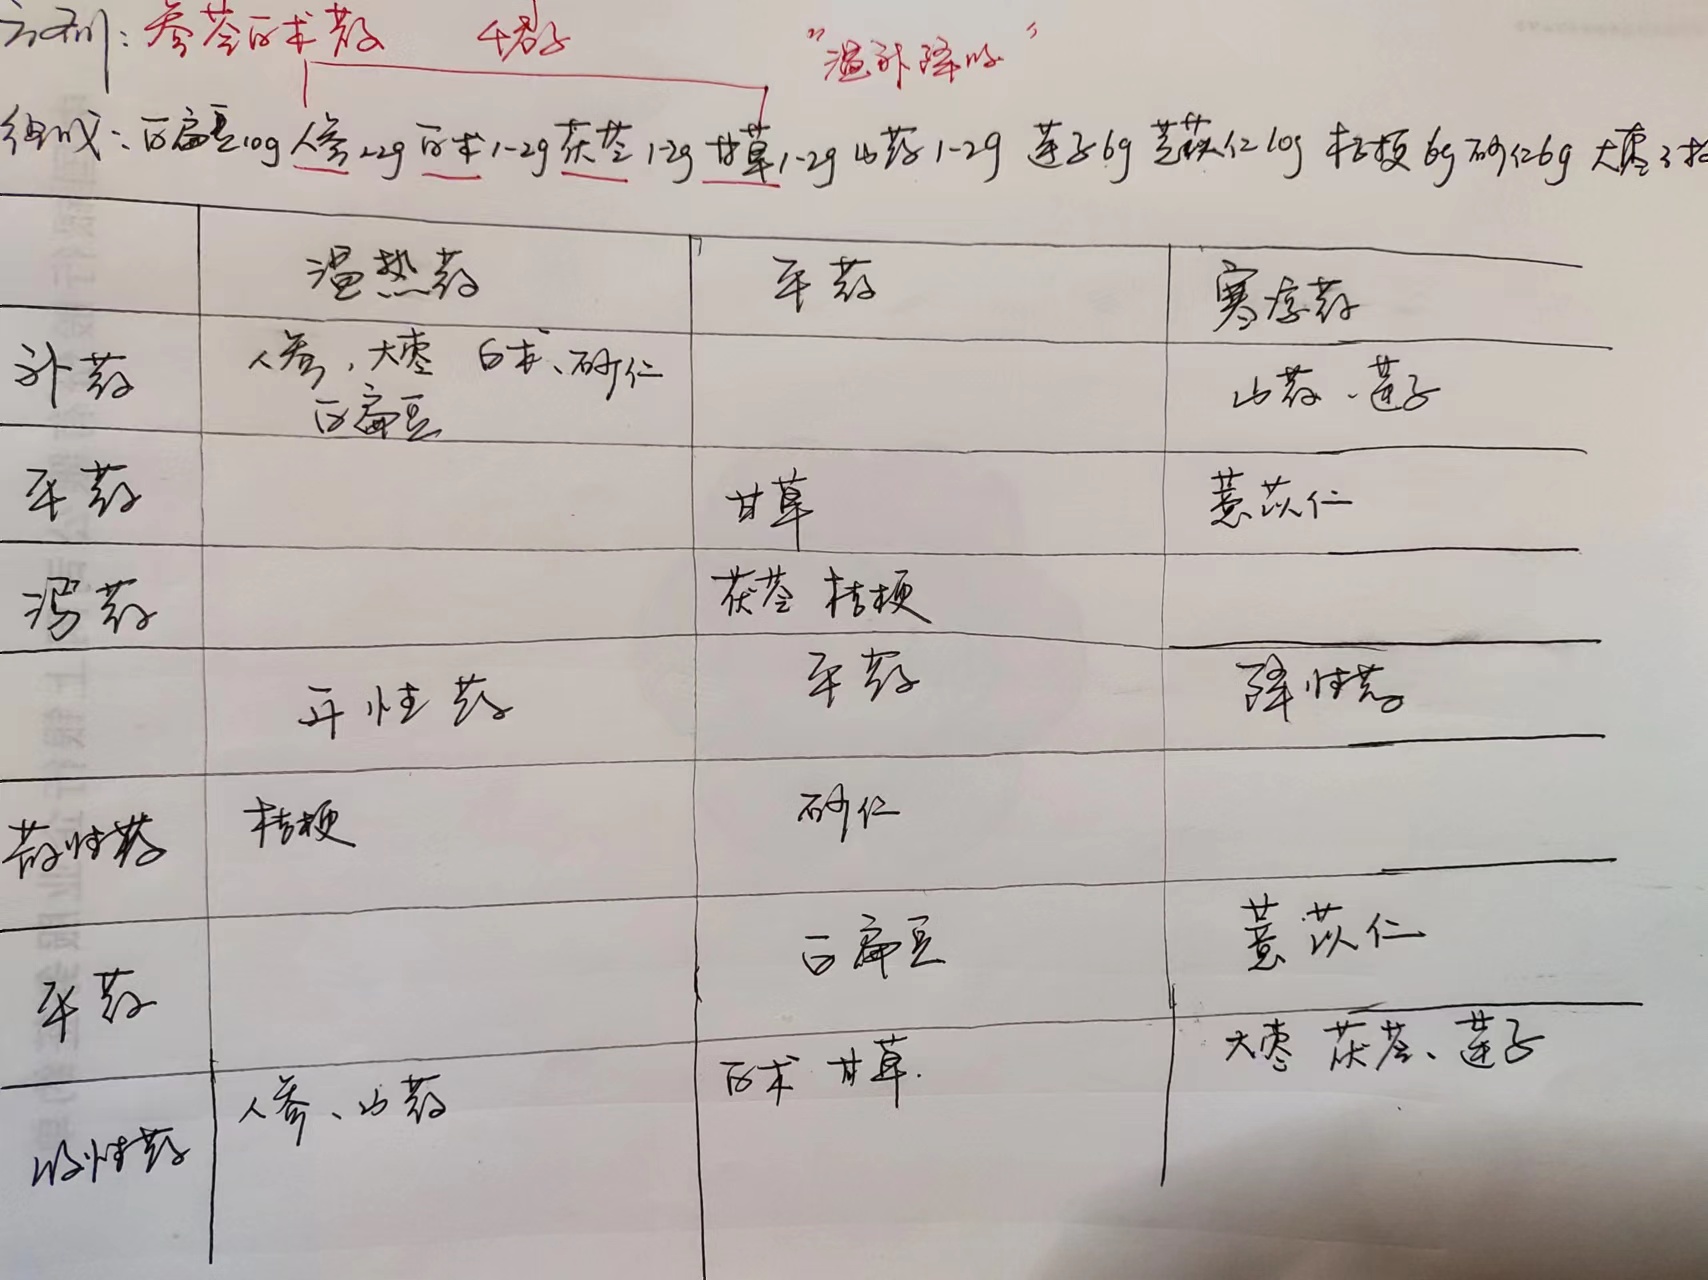 方剂：参苓白术散 四君子 "温补降收"
组成：白扁豆10g 人参12g 白术12g 茯苓12g 甘草12g 山药12g 莲子6g 薏苡仁10g 桔梗6g 砂仁6g 大枣3枚
温热药 平药 寒凉药
补药 人参，大枣 白术、砂仁 山药、莲子
白扁豆
平药 甘草 薏苡仁
泻药 茯苓 桔梗
升性药 平药 降性药
散性药 桔梗 砂仁
平药 白扁豆 薏苡仁
收性药 人参、山药 白术 甘草. 大枣 茯苓、莲子